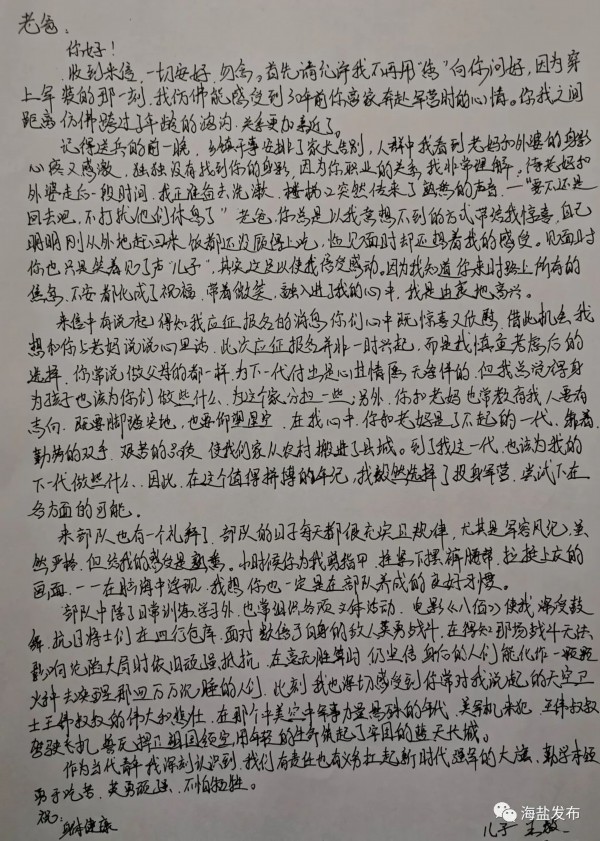 老爸：
你好！
收到来信，一切安好，勿念。首先请允许我不再用“您”向你问好，因为穿
上军装的那一刻，我仿佛能感受到30年前你离家奔赴军营时的心情。你我之间
距离仿佛跨过了年龄的鸿沟，关系更加亲近了。
记得送兵的前一晚，乡镇干事安排了家人告别，人群中我看到老妈和外婆的身影
心疼又感激，独独没有找到你的身影，因为你职业的关系，我非常理解，待老妈和
外婆走后一段时间，我正准备去洗漱，楼梯口突然传来了熟悉的声音，一“要不还是
回去吧，不打扰他们休息了”老爸，你总是以我意想不到的方式带给我惊喜，自己
明明刚从外地赶回来，饭都还没顾得上吃，临见面时却还想着我的感受。见面时
你也只是笑着见了声“儿子”，其实这足以使我倍受感动。因为我知道你来时路上所有的
焦急、不安都化成了祝福，带着微笑，融入进了我的心中，我是由衷地高兴。
来信中有说起得知我应征报名的消息你们心中既惊喜又欣慰，借此机会我
想和你与老妈说说心里话，此次应征报名并非一时兴起，而是我慎重考虑后的
选择，你常说做父母的都一样，为下一代付出是心甘情愿无条件的，但我总觉得身
为孩子也该为你们做些什么，为这个家分担一些，另外，你和老妈也常教育我人要有
志向，既要脚踏实地，也要仰望星空，在我心中，你和老妈是了不起的一代，靠着
勤劳的双手，艰苦的品质，使我们家从农村搬进了县城。到了我这一代，也该为我的
下一代做些什么，因此，在这个值得拼搏的年纪，我毅然选择了投身军营，尝试下在
各方面的可能。
来部队也有一个礼拜了，部队的日子每天都很充实且规律，尤其是军容风纪，虽
然严格，但给我的感觉是熟悉。小时候你为我剪指甲，拴紧下摆裤腰带，拉挺上衣的
画面，一一在脑海中浮现，我想你也一定是在部队养成的良好习惯。
部队中除了日常训练、学习外，也常组织各项文体活动，电影《八佰》使我深受鼓
舞，抗日将士们在四行仓库，面对数倍于自身的敌人英勇战斗，在得知那场战斗无法
影响危险大局时依旧顽强抵抗，在毫无胜算时仍坚信身后的人们能化作一颗颗
火种去唤醒那四万万沉睡的人们，此刻我也深切感受到你常对我说起的天空卫
士王伟叔叔的伟大和悲壮，在那个中美空中军事力量悬殊的年代，美军机来犯，王伟叔叔
驾驶长机，誓死捍卫祖国领空，用年轻的生命筑起了军国的蓝天长城。
作为当代青年我深刻认识到，我们有责任也有义务扛起新时代强军的大旗，勤学本领
勇于吃苦，英勇顽强、不怕牺牲。
祝：
身体健康
儿子
海盐发布